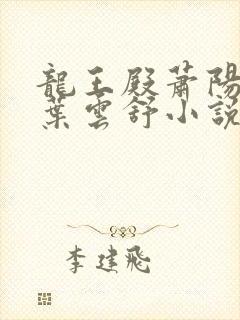 龍王殿蕭陽
葉雲舒小說
李建飛